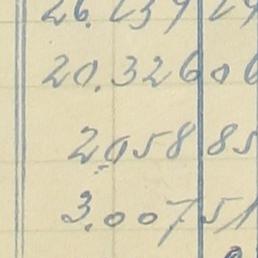 26.139 29
20.326 06
2.058 85
3.007 51